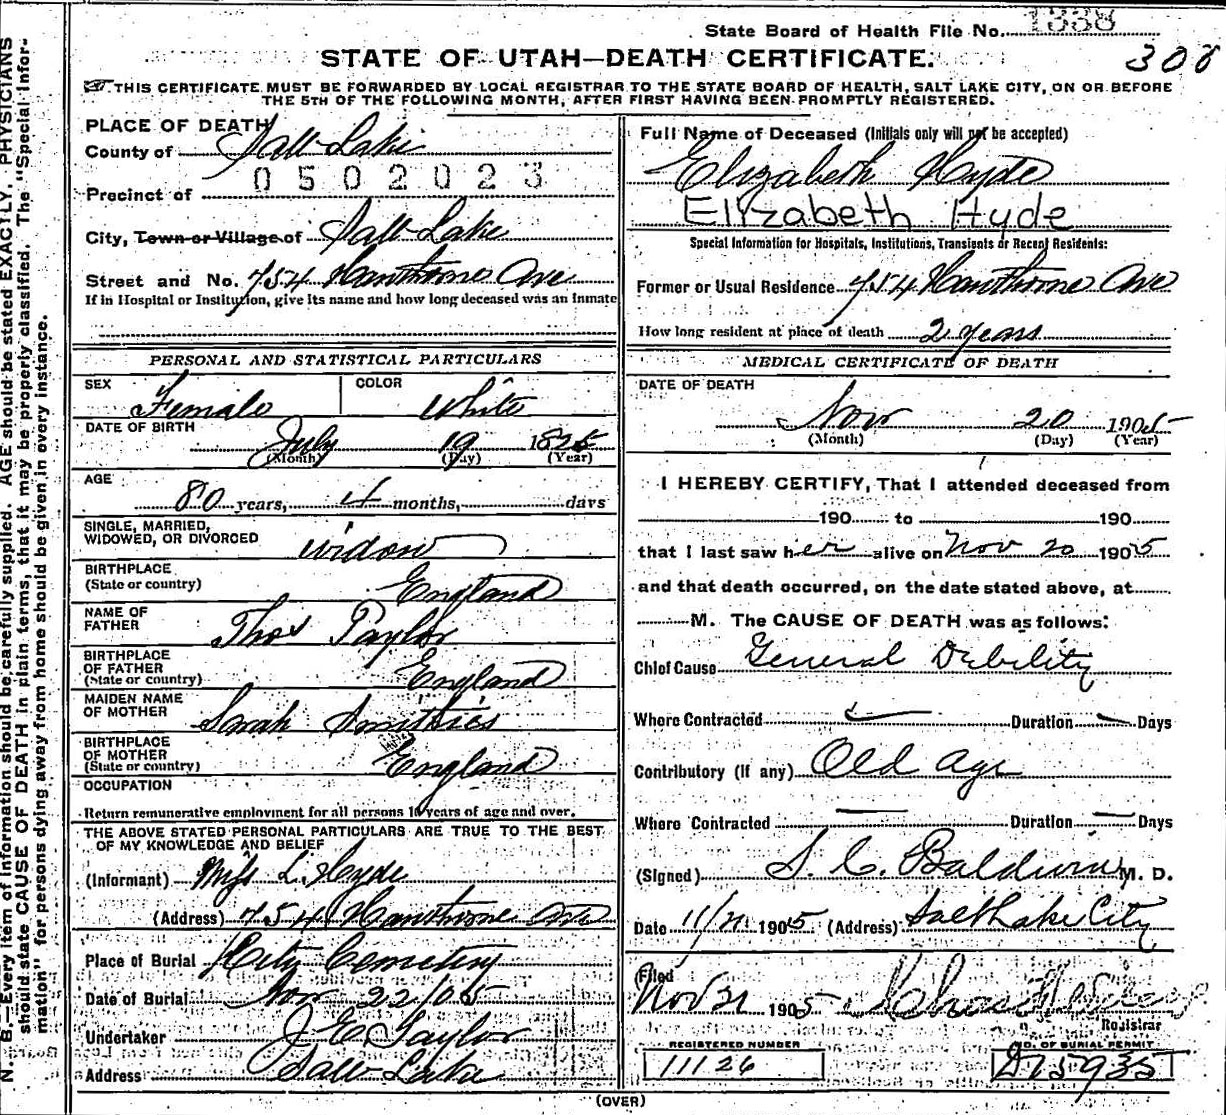 State Board of Health File No. 1338
308
STATE OF UTAH—DEATH CERTIFICATE.
THIS CERTIFICATE MUST BE FORWARDED BY LOCAL REGISTRAR TO THE STATE BOARD OF HEALTH, SALT LAKE CITY, ON OR BEFORE
THE 5TH OF THE FOLLOWING MONTH, AFTER FIRST HAVING BEEN PROMPTLY REGISTERED.
N. B.—Every item of information should be carefully supplied. AGE should be stated EXACTLY. PHYSICIANS
should state CAUSE OF DEATH in plain terms, that it may be properly classified. The "Special Infor-
mation" for persons dying away from home should be given in every instance.
PLACE OF DEATH
County of Salt Lake
0502023
Precinct of
City, Town or Village of Salt Lake
Street and No. 754 Hawthorne Ave
If in Hospital or Institution, give its name and how long deceased was an inmate
PERSONAL AND STATISTICAL PARTICULARS
SEX Female COLOR White
DATE OF BIRTH
July 19 1825
(Month) (Day) (Year)
AGE
80 years, 4 months, days
SINGLE, MARRIED,
WIDOWED, OR DIVORCED widow
BIRTHPLACE
(State or country) England
NAME OF
FATHER Thos Taylor
BIRTHPLACE
OF FATHER
(State or country) England
MAIDEN NAME
OF MOTHER Sarah Smithies
BIRTHPLACE
OF MOTHER
(State or country) England
OCCUPATION
Return remunerative employment for all persons 10 years of age and over.
THE ABOVE STATED PERSONAL PARTICULARS ARE TRUE TO THE BEST
OF MY KNOWLEDGE AND BELIEF
(Informant) Miss L. Hyde
(Address) 754 Hawthorne Ave
Place of Burial City Cemetery
Date of Burial Nov 22/05
Undertaker J E Taylor
Address Salt Lake
Full Name of Deceased (Initials only will not be accepted)
Elizabeth Hyde
Elizabeth Hyde
Special Information for Hospitals, Institutions, Transients or Recent Residents:
Former or Usual Residence 754 Hawthorne Ave
How long resident at place of death 2 years
MEDICAL CERTIFICATE OF DEATH
DATE OF DEATH
Nov 20 1905
(Month) (Day) (Year)
I HEREBY CERTIFY, That I attended deceased from
190 to 190
that I last saw her alive on Nov 20 1905
and that death occurred, on the date stated above, at
M. The CAUSE OF DEATH was as follows:
Chief Cause General Debility
Where Contracted Duration Days
Contributory (If any) Old age
Where Contracted Duration Days
(Signed) S. C. Baldwin M. D.
Date 11/21 1905 (Address) Salt Lake City
Filed
Nov 21 1905
Registrar
REGISTERED NUMBER
11126
NO. OF BURIAL PERMIT
D15935
(OVER)